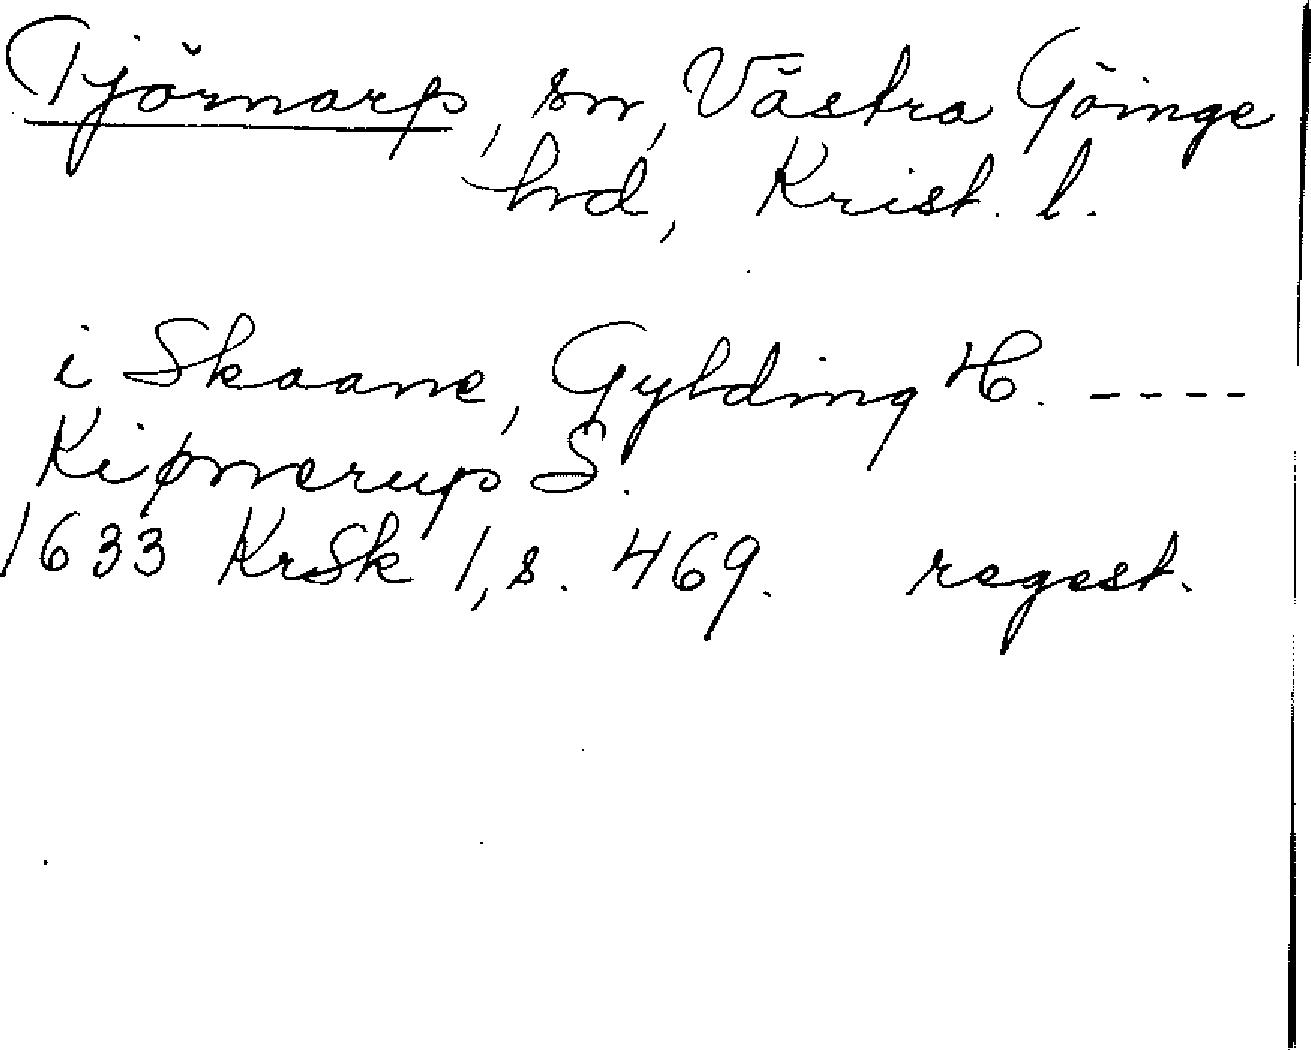 Tjörnarp, sn, Västra Göinge
hrd, Krist. l.
i Skaane, Gylding H. ----
Kiørnerup S.
1633 KrSk 1, s. 469. regest.